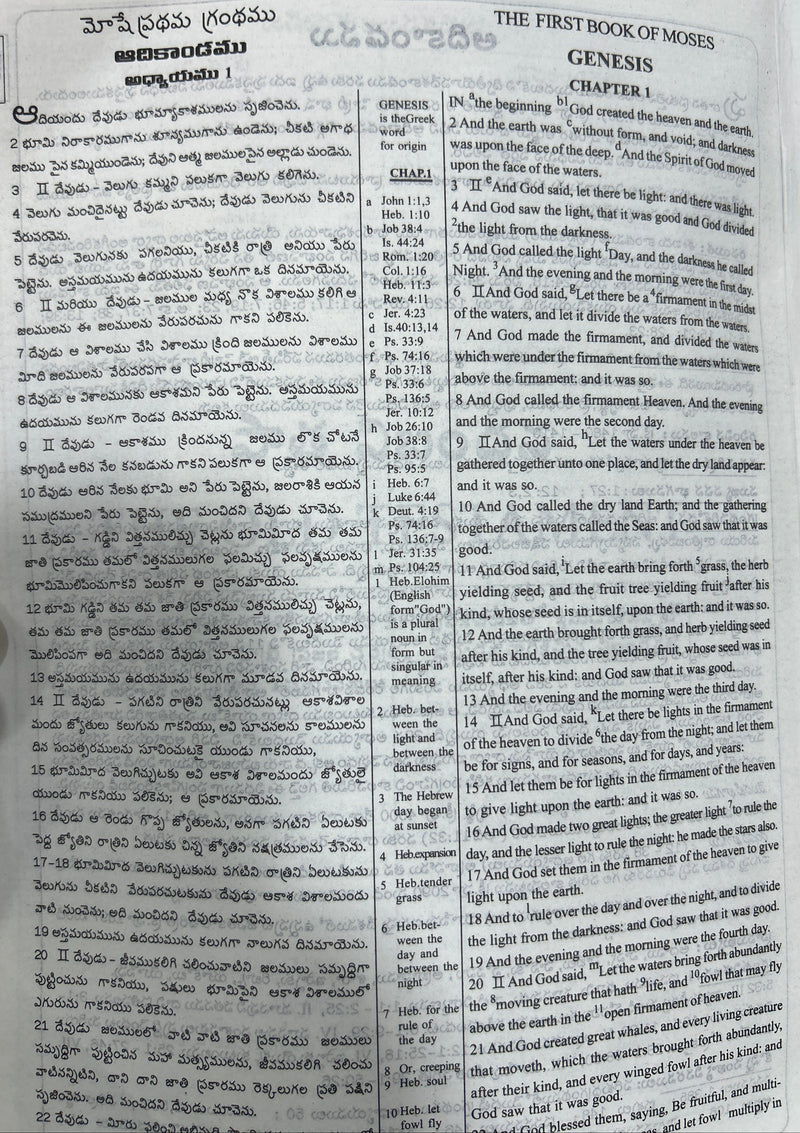 మోషే ప్రథమ గ్రంథము
ఆదికాండము
అధ్యాయము 1
ఆదియందు దేవుడు భూమ్యాకాశములను సృజించెను.
2 భూమి నిరాకారముగాను శూన్యముగాను ఉండెను; చీకటి అగాధ
జలము పైన కమ్మియుండెను; దేవుని ఆత్మ జలములపైన అల్లాడు చుండెను.
3 II దేవుడు – వెలుగు కమ్మని పలుకగా వెలుగు కలిగెను.
4 వెలుగు మంచిదైనట్టు దేవుడు చూచెను; దేవుడు వెలుగును చీకటిని
వేరుపరచెను.
5 దేవుడు వెలుగునకు పగలనియు, చీకటికి రాత్రి అనియు పేరు
పెట్టెను. అస్తమయమును ఉదయమును కలుగగా ఒక దినమాయెను.
6 II మరియు దేవుడు – జలముల మధ్య నొక విశాలము కలిగి ఆ
జలములను ఈ జలములను వేరుపరచును గాకని పలికెను.
7 దేవుడు ఆ విశాలము చేసి విశాలము క్రింది జలములను విశాలము
మీది జలములను వేరుపరపగా ఆ ప్రకారమాయెను.
8 దేవుడు ఆ విశాలమునకు ఆకాశమని పేరు పెట్టెను. అస్తమయమును
ఉదయమును కలుగగా రెండవ దినమాయెను.
9 II దేవుడు – ఆకాశము క్రిందనున్న జలము లొక చోటనే
కూర్చబడి ఆరిన నేల కనబడును గాకని పలుకగా ఆ ప్రకారమాయెను.
10 దేవుడు ఆరిన నేలకు భూమి అని పేరు పెట్టెను, జలరాశికి ఆయన
సముద్రములని పేరు పెట్టెను, అది మంచిదని దేవుడు చూచెను.
11 దేవుడు – గడ్డిని విత్తనములిచ్చు చెట్లను భూమిమీద తమ తమ
జాతి ప్రకారము తమలో విత్తనములుగల ఫలమిచ్చు ఫలవృక్షములను
భూమిమొలిపించుగాకని పలుకగా ఆ ప్రకారమాయెను.
12 భూమి గడ్డిని తమ తమ జాతి ప్రకారము విత్తనములిచ్చు చెట్లను,
తమ తమ జాతి ప్రకారము తమలో విత్తనములుగల ఫలవృక్షములను
మొలిపింపగా అది మంచిదని దేవుడు చూచెను.
13 అస్తమయమును ఉదయమును కలుగగా మూడవ దినమాయెను.
14 II దేవుడు – పగటిని రాత్రిని వేరుపరచునట్లు ఆకాశవిశాల
మందు జ్యోతులు కలుగును గాకనియు, అవి సూచనలను కాలములను
దిన సంవత్సరములను సూచించుటకై యుండు గాకనియు,
15 భూమిమీద వెలుగిచ్చుటకు అవి ఆకాశ విశాలమందు జ్యోతులై
యుండు గాకనియు పలికెను; ఆ ప్రకారమాయెను.
16 దేవుడు ఆ రెండు గొప్ప జ్యోతులను, అనగా పగటిని ఏలుటకు
పెద్ద జ్యోతిని రాత్రిని ఏలుటకు చిన్న జ్యోతిని నక్షత్రములను చేసెను.
17-18 భూమిమీద వెలుగిచ్చుటకును పగటిని రాత్రిని ఏలుటకును
వెలుగును చీకటిని వేరుపరచుటకును దేవుడు ఆకాశ విశాలమందు
వాటి నుంచెను; అది మంచిదని దేవుడు చూచెను.
19 అస్తమయమును ఉదయమును కలుగగా నాలుగవ దినమాయెను.
20 II దేవుడు – జీవముకలిగి చలించువాటిని జలములు సమృద్ధిగా
పుట్టించును గాకనియు, పక్షులు భూమిపైని ఆకాశ విశాలములో
ఎగురును గాకనియు పలికెను.
21 దేవుడు జలములలో వాటి వాటి జాతి ప్రకారము జలములు
సమృద్ధిగా పుట్టించిన మహా మత్స్యములను, జీవముకలిగి చలించు
వాటినన్నిటిని, దాని దాని జాతి ప్రకారము రెక్కలుగల ప్రతి పక్షిని
సృజించెను. అది మంచిదని దేవుడు చూచెను.
22 దేవుడు – మీరు ఫలించి
GENESIS
is theGreek
word
for origin
CHAP.1
a John 1:1,3
Heb. 1:10
b Job 38:4
Is. 44:24
Rom. 1:20
Col. 1:16
Heb. 11:3
Rev. 4:11
c Jer. 4:23
d Is.40:13,14
e Ps. 33:9
f Ps. 74:16
g Job 37:18
Ps. 33:6
Ps. 136:5
Jer. 10:12
h Job 26:10
Job 38:8
Ps. 33:7
Ps. 95:5
i Heb. 6:7
j Luke 6:44
k Deut. 4:19
Ps. 74:16
Ps. 136;7-9
l Jer. 31:35
m Ps. 104:25
1 Heb.Elohim
(English
form"God")
is a plural
noun in
form but
singular in
meaning
2 Heb. bet-
ween the
light and
between the
darkness
3 The Hebrew
day began
at sunset
4 Heb.expansion
5 Heb.tender
grass
6 Heb.bet-
ween the
day and
between the
night
7 Heb. for the
rule of
the day
8 Or, creeping
9 Heb. soul
10 Heb. let
fowl fly
THE FIRST BOOK OF MOSES
GENESIS
CHAPTER 1
IN a the beginning b1 God created the heaven and the earth.
2 And the earth was c without form, and void; and darkness
was upon the face of the deep. d And the Spirit of God moved
upon the face of the waters.
3 II e And God said, let there be light: and there was light.
4 And God saw the light, that it was good and God divided
2 the light from the darkness.
5 And God called the light f Day, and the darkness he called
Night. 3 And the evening and the morning were the first day.
6 II And God said, g Let there be a 4 firmament in the midst
of the waters, and let it divide the waters from the waters.
7 And God made the firmament, and divided the waters
which were under the firmament from the waters which were
above the firmament: and it was so.
8 And God called the firmament Heaven. And the evening
and the morning were the second day.
9 II And God said, h Let the waters under the heaven be
gathered together unto one place, and let the dry land appear:
and it was so.
10 And God called the dry land Earth; and the gathering
together of the waters called the Seas: and God saw that it was
good.
11 And God said, i Let the earth bring forth 5 grass, the herb
yielding seed, and the fruit tree yielding fruit j after his
kind, whose seed is in itself, upon the earth: and it was so.
12 And the earth brought forth grass, and herb yielding seed
after his kind, and the tree yielding fruit, whose seed was in
itself, after his kind: and God saw that it was good.
13 And the evening and the morning were the third day.
14 II And God said, k Let there be lights in the firmament
of the heaven to divide 6 the day from the night; and let them
be for signs, and for seasons, and for days, and years:
15 And let them be for lights in the firmament of the heaven
to give light upon the earth: and it was so.
16 And God made two great lights; the greater light 7 to rule the
day, and the lesser light to rule the night: he made the stars also.
17 And God set them in the firmament of the heaven to give
light upon the earth.
18 And to l rule over the day and over the night, and to divide
the light from the darkness: and God saw that it was good.
19 And the evening and the morning were the fourth day.
20 II And God said, m Let the waters bring forth abundantly
the 8 moving creature that hath 9 life, and 10 fowl that may fly
above the earth in the 11 open firmament of heaven.
21 And God created great whales, and every living creature
that moveth, which the waters brought forth abundantly,
after their kind, and every winged fowl after his kind: and
God saw that it was good.
22 And God blessed them, saying, Be fruitful, and multi-
and let fowl multiply in